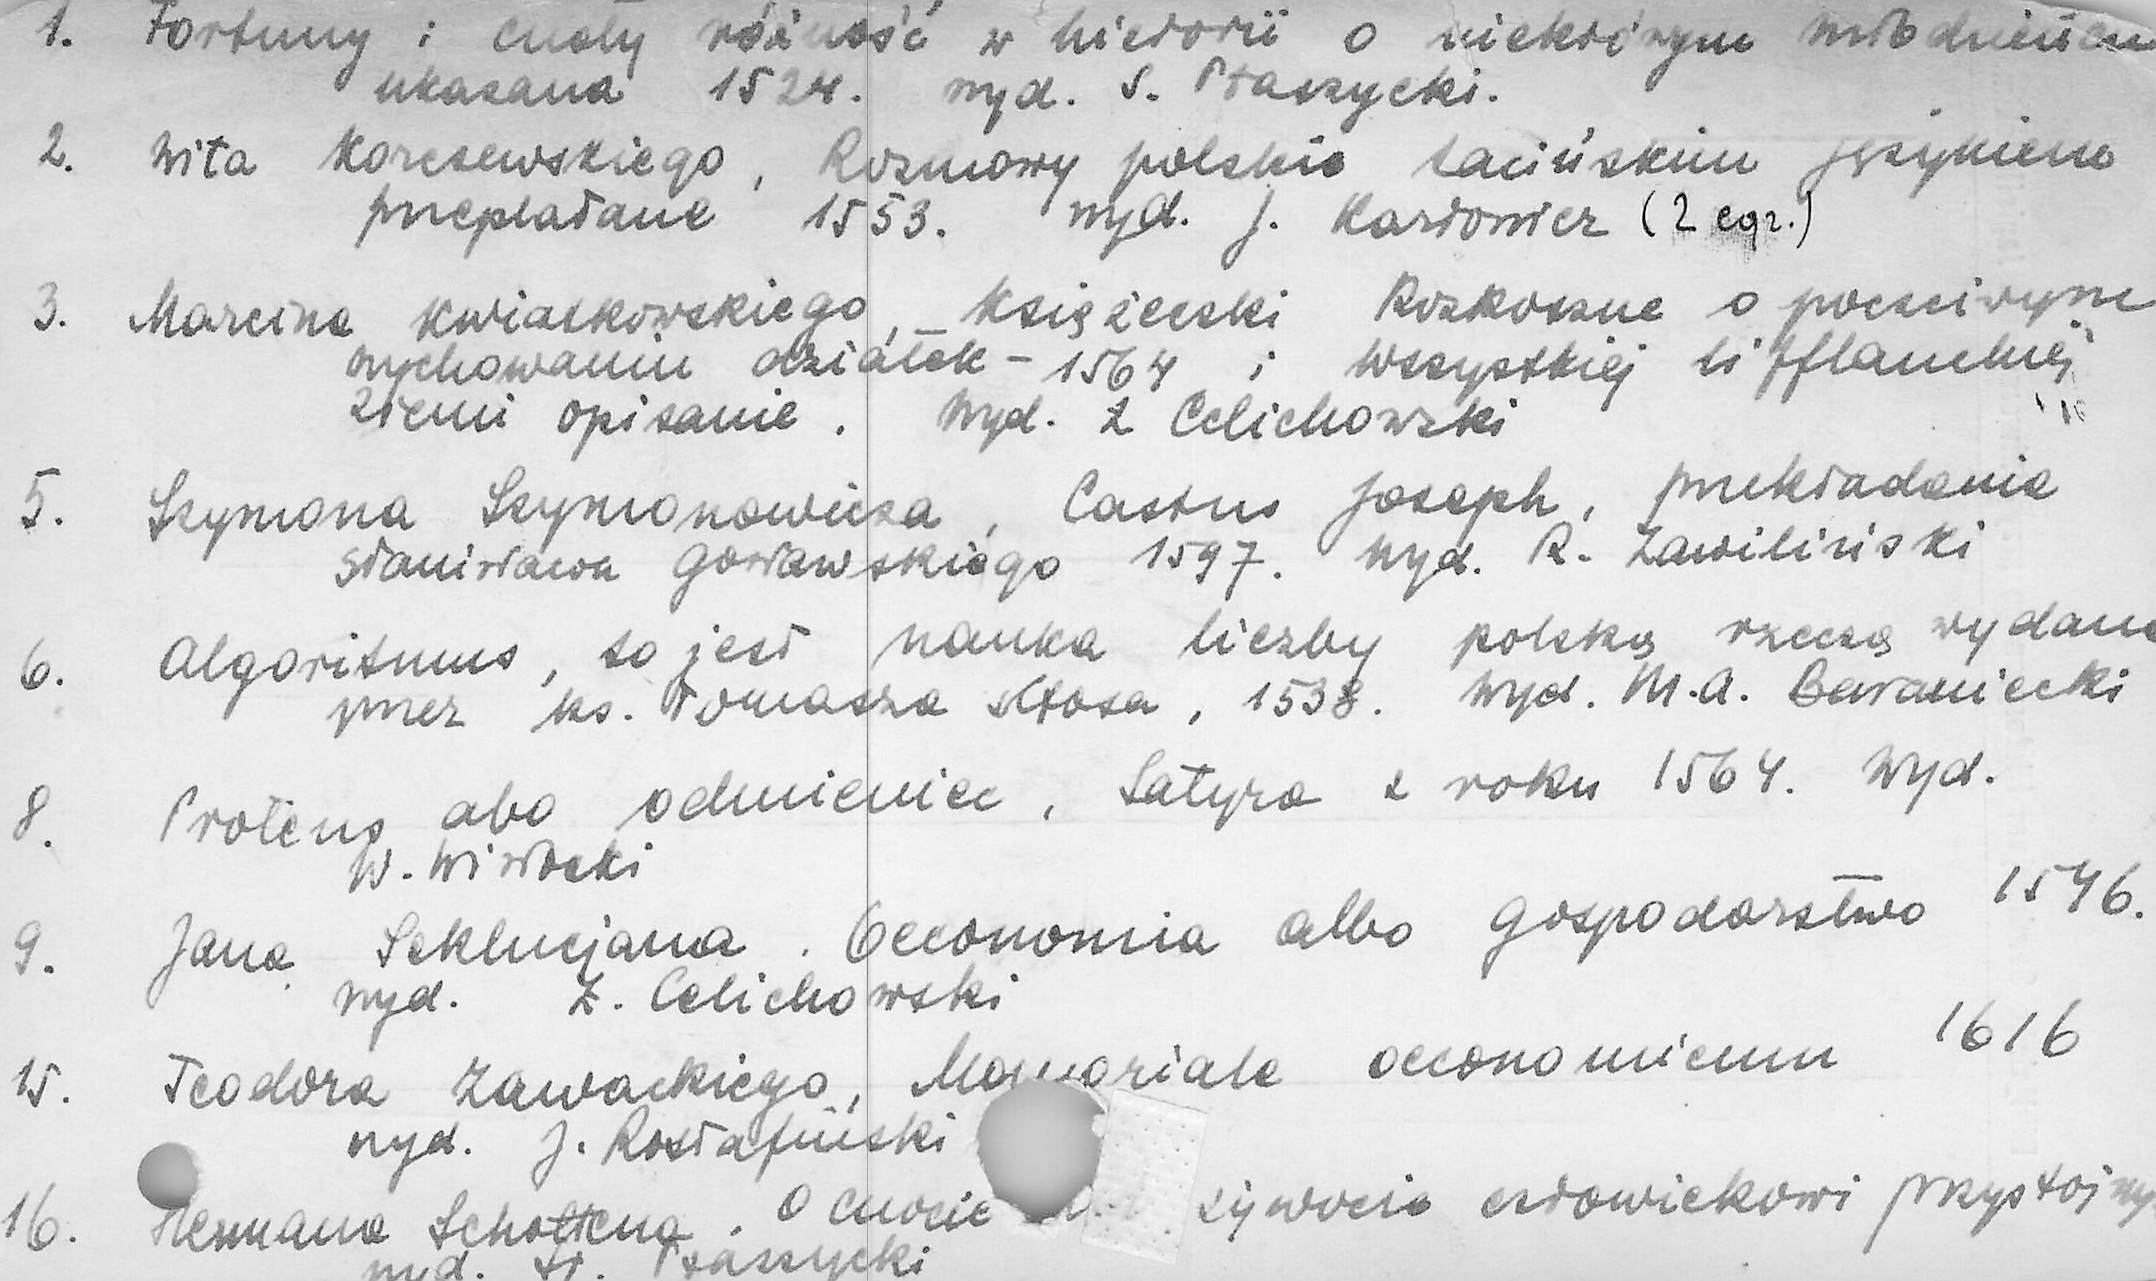 1. Fortuny i cnoty różność w historii o niektórym młodzieńcu
ukazana 1524. wyd. S. Ptaszycki.
2. Wita Korczewskiego, Rozmowy polskie łacińskim językiem
przeplatane 1553. wyd. J. Karłowicz (2 egz.)
3. Marcina Kwiatkowskiego, Książeczki Rozkoszne o poczciwym
wychowaniu dziatek - 1564 i Wszystkiej Lifflanckiej
ziemi opisanie. Wyd. Z Celichowski
5. Szymona Szymonowicza, Castus Joseph, przekładania
Stanisława Gosławskiego 1597. wyd. R. Zawiliński
6. Algoritmus, to jest nauka liczby polską rzeczą wydana
przez ks. Tomasza Kłosa, 1538. Wyd. M.A. Baraniecki
8. Proteus abo odmieniec, Satyra z roku 1564. Wyd.
W. Wisłocki
9. Jana Seklucjana. Oeconomia albo gospodarstwo 1546.
wyd. Z. Celichowski
15. Teodora Zawackiego, Memoriale oeconomicum 1616
wyd. J. Rostafiński
16. Hermana Schottena. O cnocie żywocie człowiekowi przystojny
wyd. St. Ptaszycki